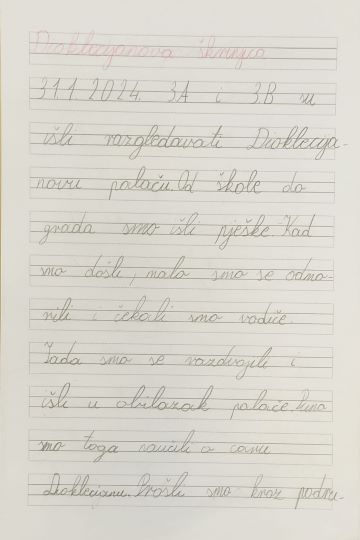 Dioklecijanova škrinjica
31.1.2024. 3.A i 3.B su
išli razgledavati Dioklecija-
novu palaču. Od škole do
grada smo išli pješke. Kad
smo došli, malo smo se odmo-
rili i čekali smo vodiče.
Tada smo se razdvojili i
išli u obilazak palače. Puno
smo toga naučili o caru
Dioklecijanu. Prošli smo kroz podru-